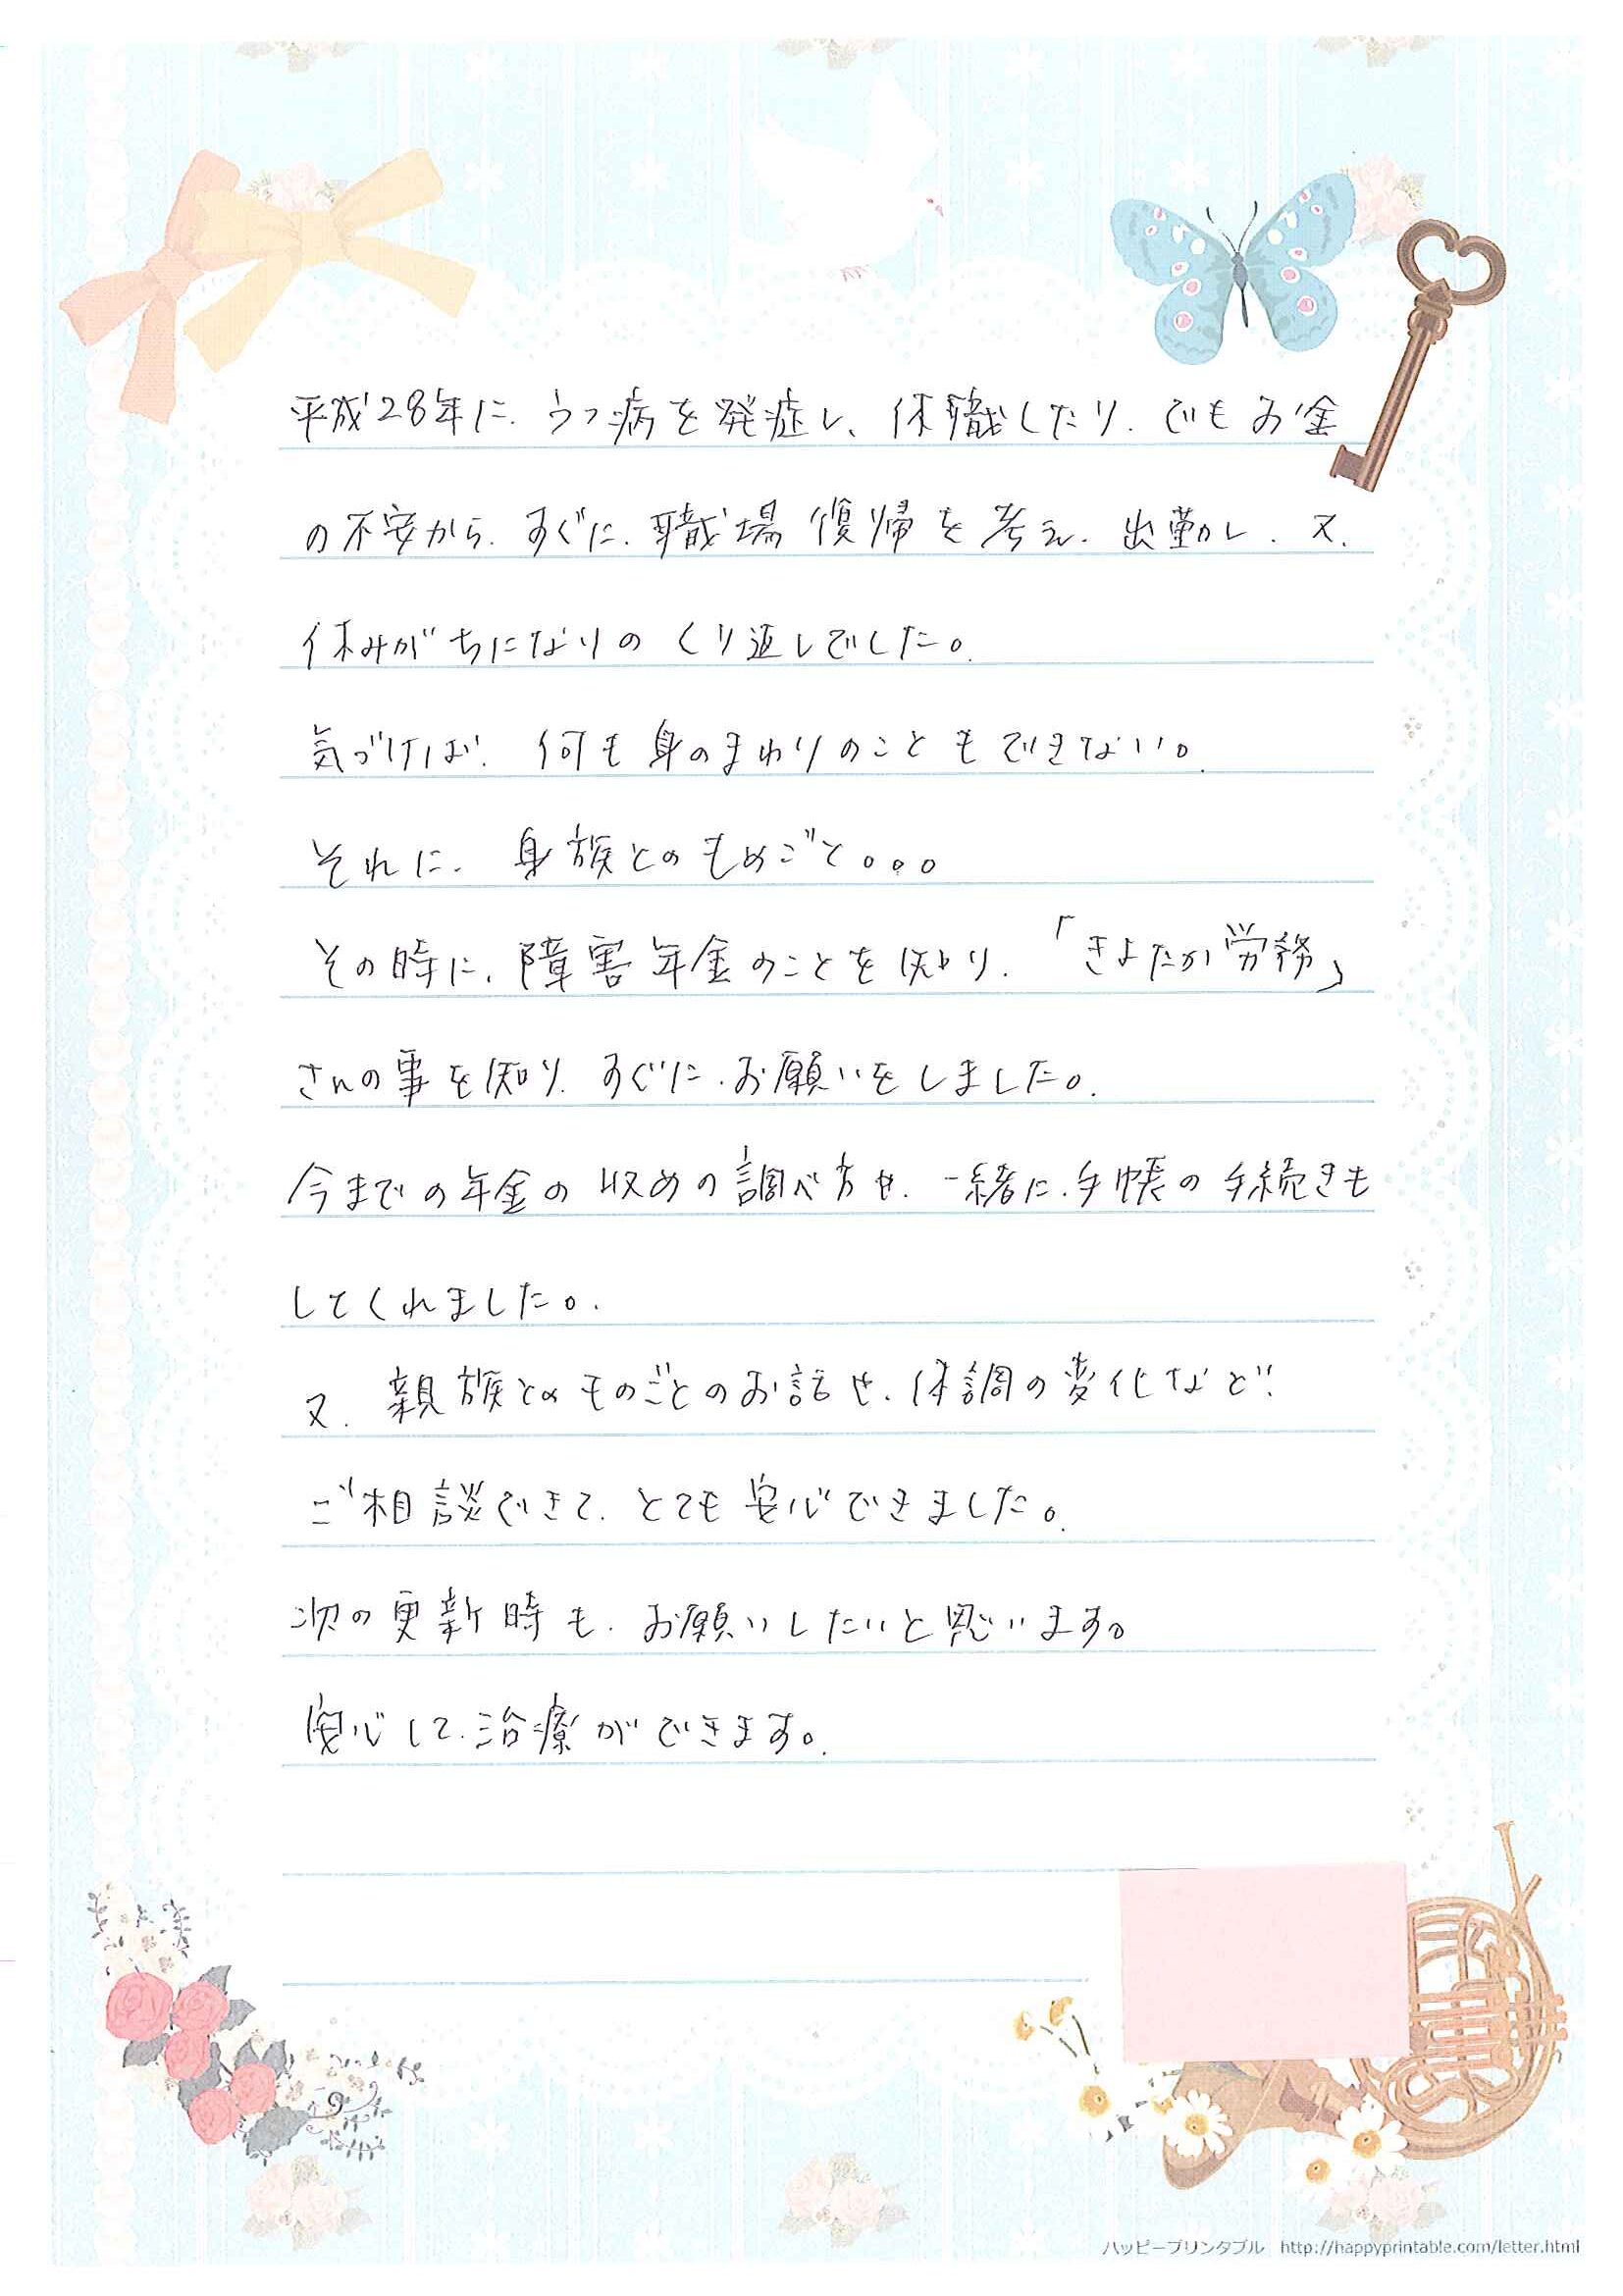 平成28年に、うつ病を発症し、休職したり、でもお金
の不安から、すぐに、職場復帰を考え、出勤し、又、
休みがちになりのくり返しでした。
気づけば、何も身のまわりのこともできない。
それに、身族とのもめごと。。。
その時に、障害年金のことを知り、「きよたか労務」
さんの事を知り、すぐに、お願いをしました。
今までの年金の収めの調べ方や、一緒に、手帳の手続きも
してくれました。
又、親族とのものごとのお話や、体調の変化など、
ご相談できて、とても安心できました。
次の更新時も、お願いしたいと思います。
安心して、治療ができます。
ハッピープリンタブル http://happyprintable.com/letter.html